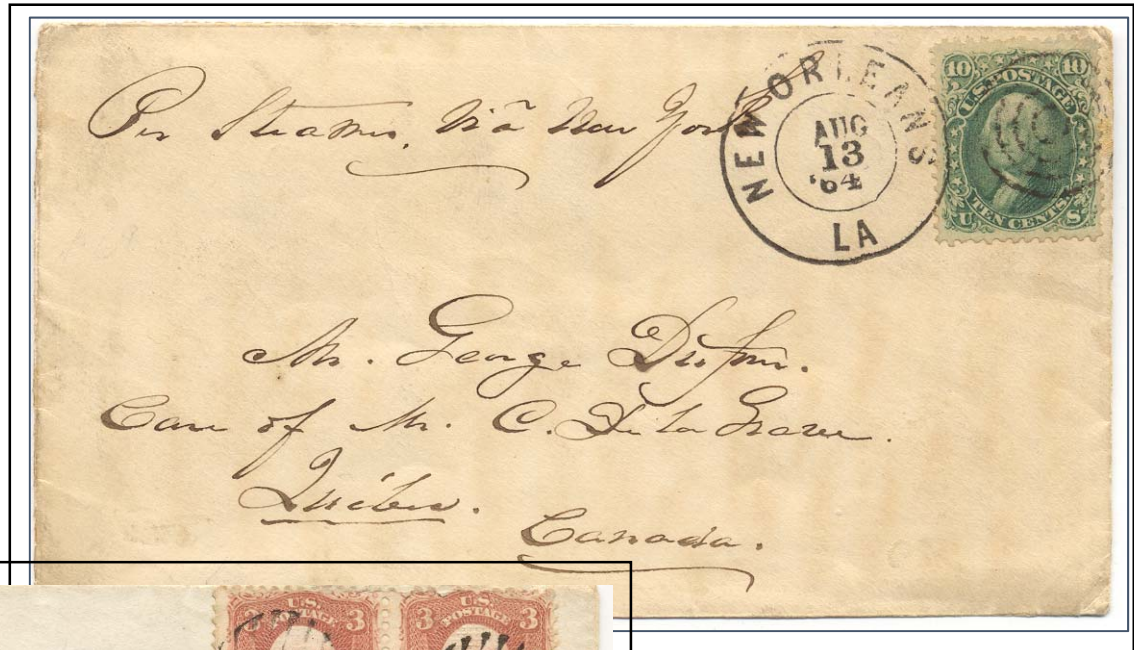 Per Steamer, Viâ New York
NEW ORLEANS
AUG
13
'64
LA
10 10
U.S. POSTAGE
TEN CENTS
U S
Mr. George
Care of Mr. C.
Québec.
Canada.
3 U.S. POSTAGE 3
3 U.S. POSTAGE 3